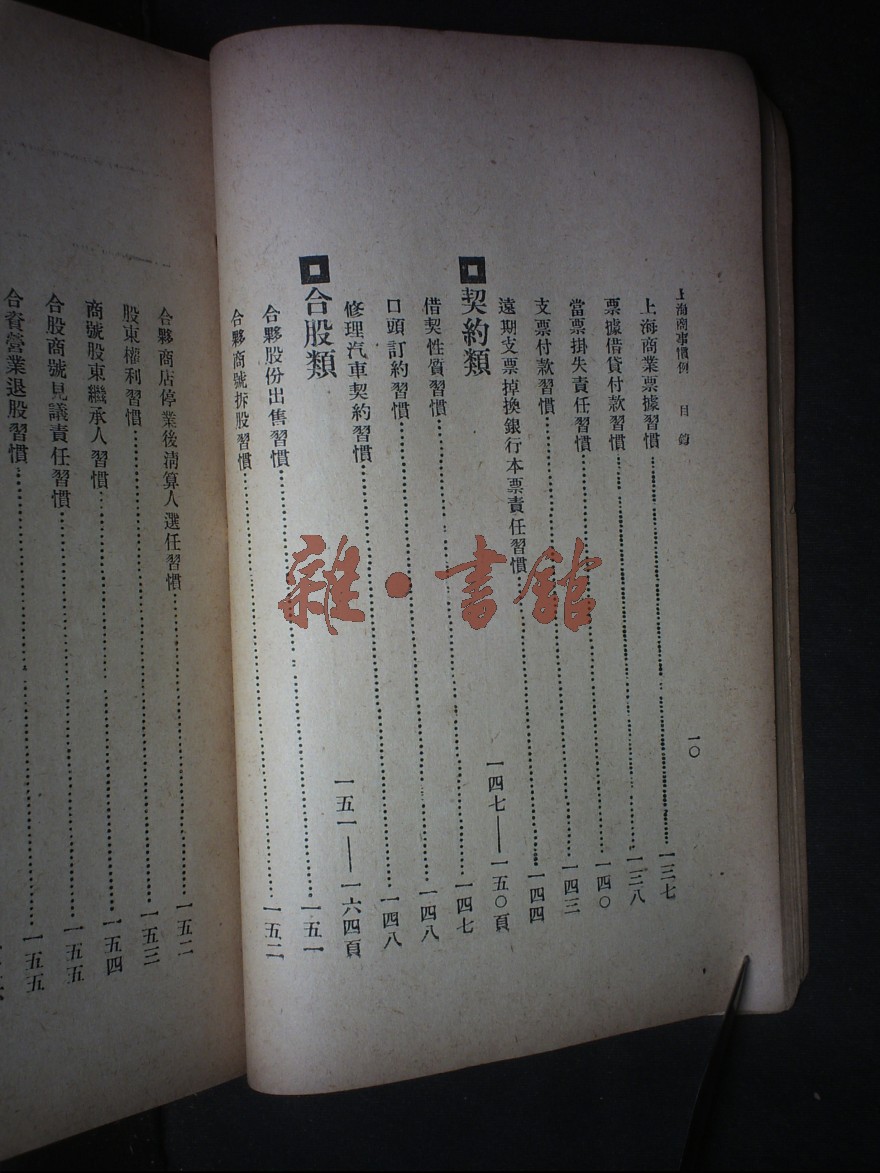 上海商事慣例 目錄 一〇
上海商業票據習慣……一三七
票據借貸付款習慣……一三八
當票掛失責任習慣……一四〇
支票付款習慣……一四三
遠期支票掉換銀行本票責任習慣……一四四
契約類 一四七——一五〇頁
借契性質習慣……一四七
口頭訂約習慣……一四八
修理汽車契約習慣……一四八
合股類 一五一——一六四頁
合夥股份出售習慣……一五一
合夥商號拆股習慣……一五二
合夥商店停業後清算人選任習慣……一五二
股東權利習慣……一五三
商號股東繼承人習慣……一五四
合股商號見議責任習慣……一五五
合資營業退股習慣……一五五
雜·書館